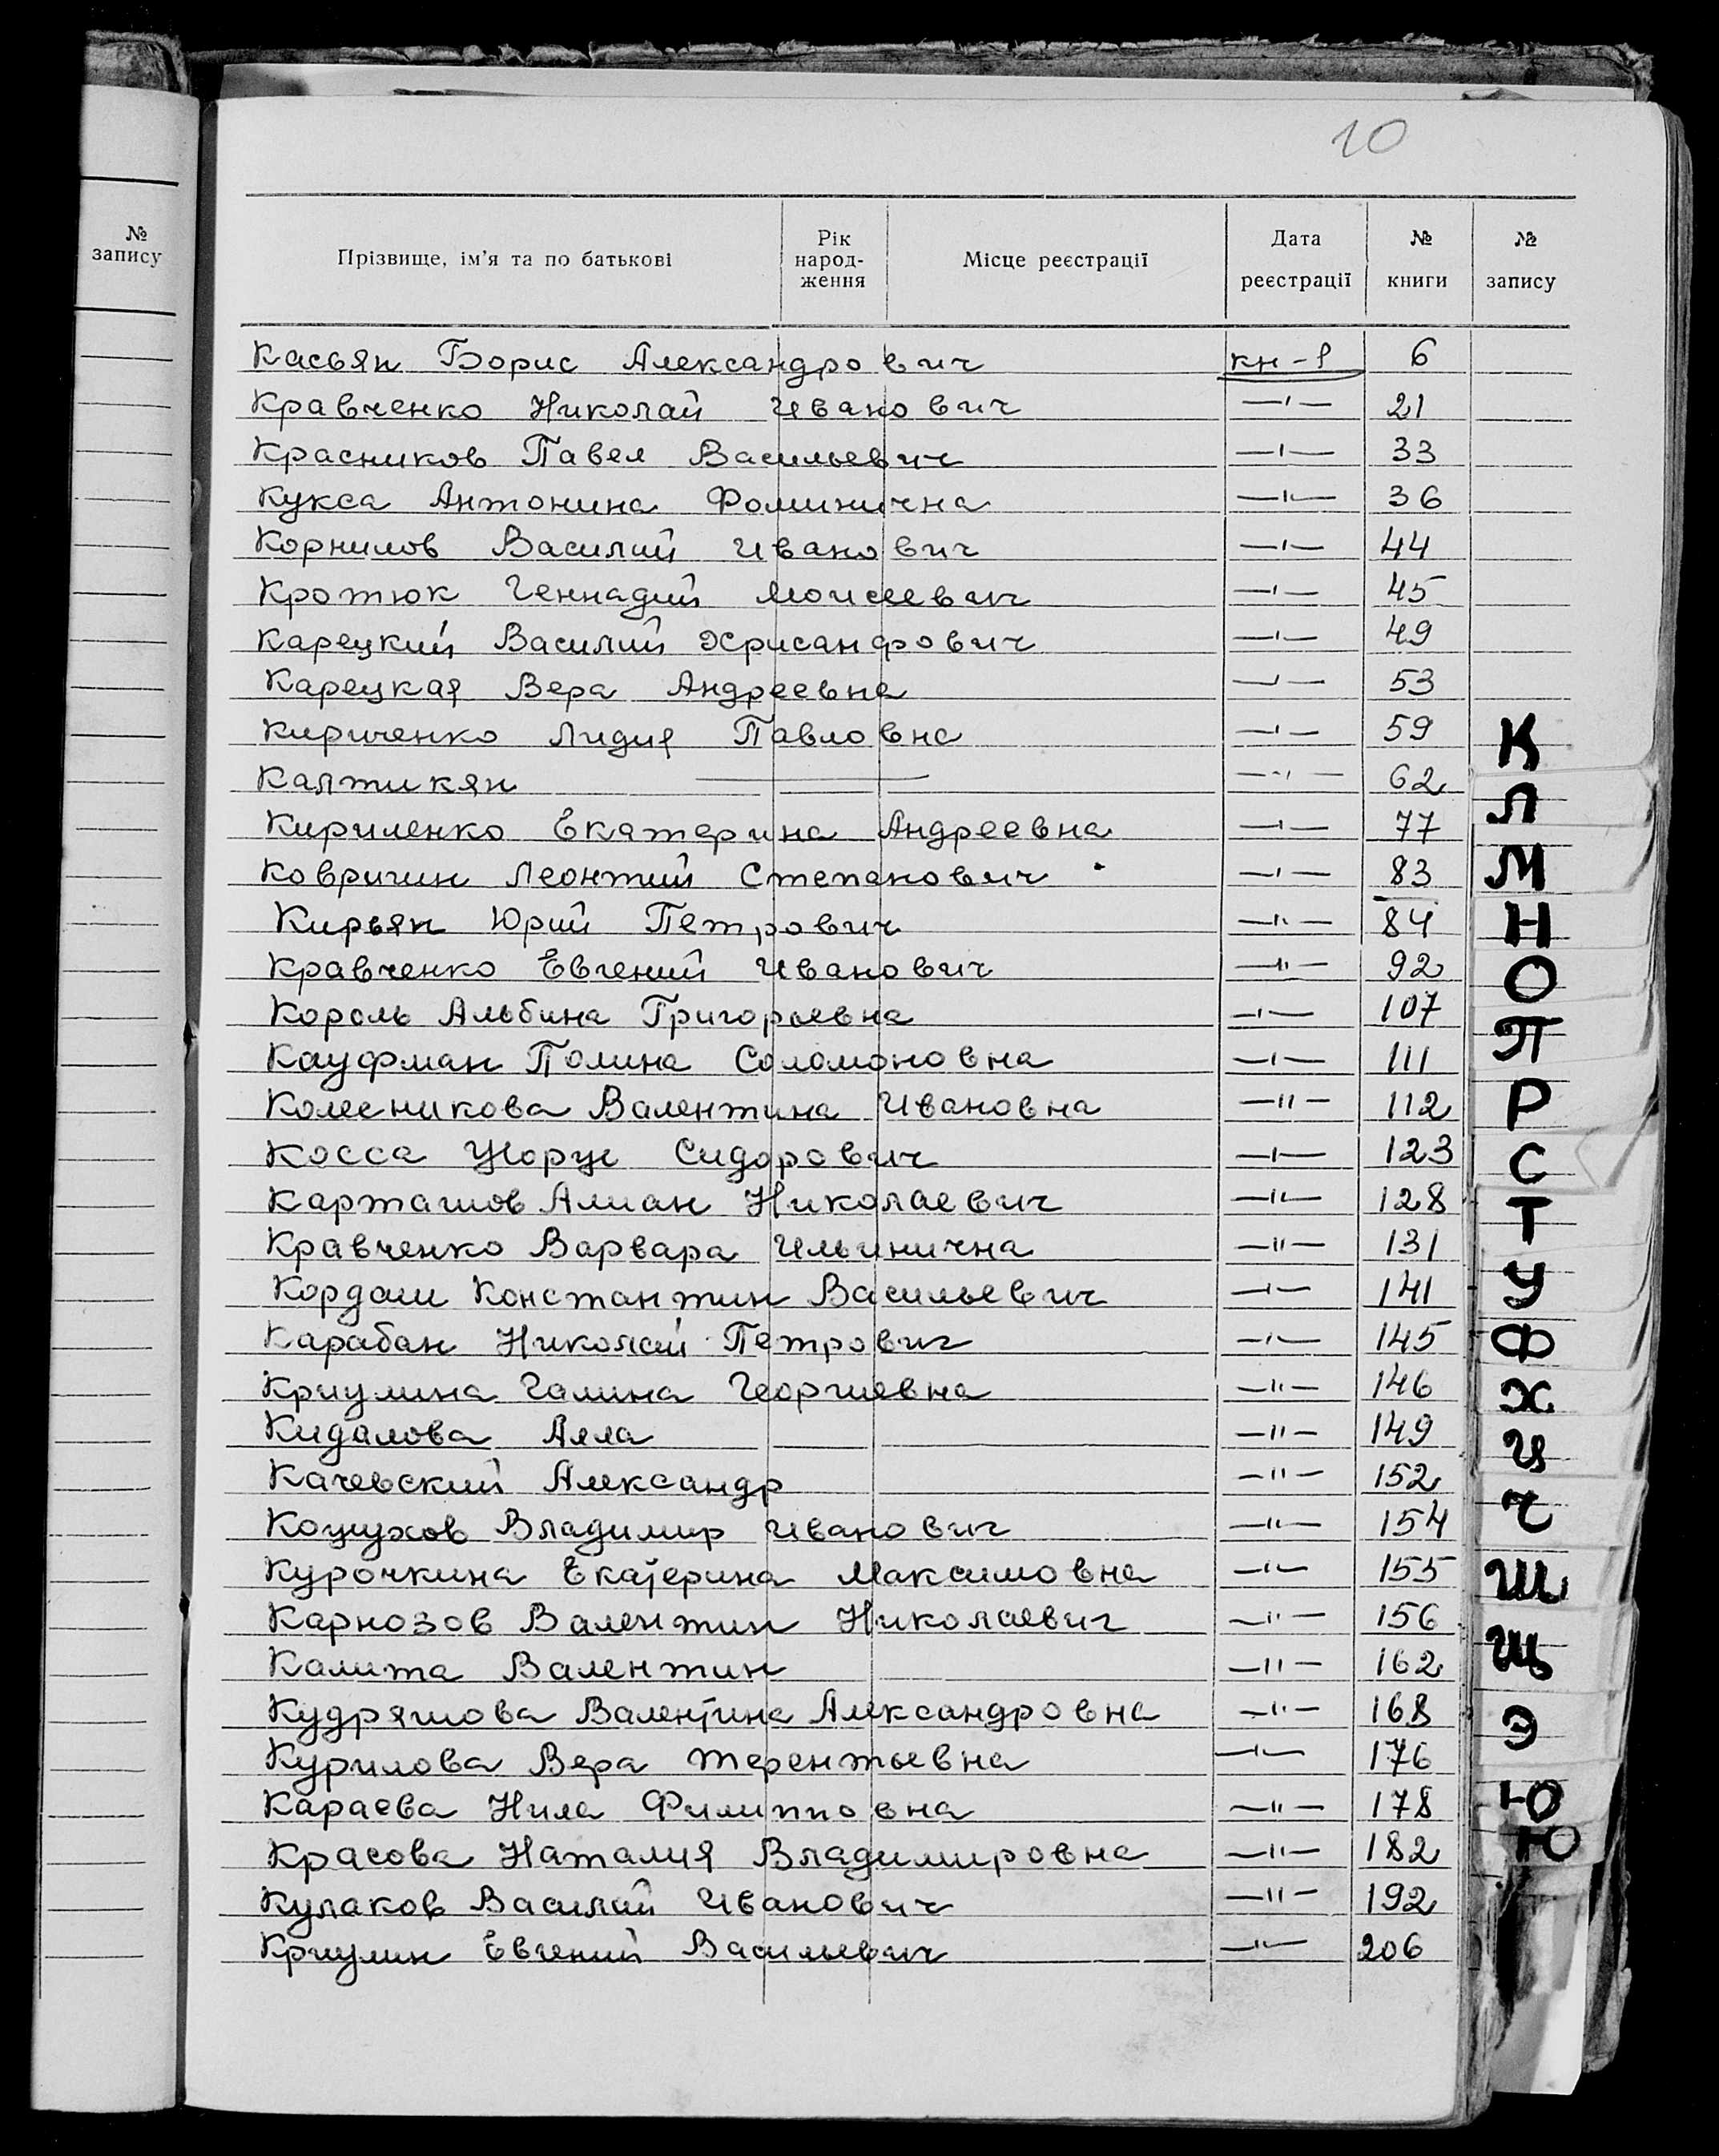 10
№ запису
Прізвище, ім'я та по батькові Рік народ-ження Місце реєстрації Дата реєстрації № книги № запису
Касьян Борис Александрович кн-1 6
Кравченко Николай Иванович —"— 21
Красников Павел Васильевич —"— 33
Кукса Антонина Фоминична —"— 36
Корнилов Василий Иванович —"— 44
Кротюк Геннадий Моисеевич —"— 45
Карецкий Василий Хрисанфович —"— 49
Карецкая Вера Андреевна —"— 53
Кириченко Лидия Павловна —"— 59
Калтикян —"— 62
Кириленко Екатерина Андреевна —"— 77
Ковригин Леонтий Степанович —"— 83
Кирьян Юрий Петрович —"— 84
Кравченко Евгений Иванович —"— 92
Король Альбина Григорьевна —"— 107
Кауфман Полина Соломоновна —"— 111
Колесникова Валентина Ивановна —"— 112
Косса Сидорович —"— 123
Карташов Алиан Николаевич —"— 128
Кравченко Варвара Ильинична —"— 131
Кордаш Константин Васильевич —"— 141
Карабан Николай Петрович —"— 145
Криулина Галина Георгиевна —"— 146
Кидалова Алла —"— 149
Качевский Александр —"— 152
Владимир Иванович —"— 154
Курочкина Екатерина Максимовна —"— 155
Карнозов Валентин Николаевич —"— 156
Калита Валентин —"— 162
Кудряшова Валентина Александровна —"— 168
Курилова Вера Терентьевна —"— 176
Караева Нила Филипповна —"— 178
Красова Наталия Владимировна —"— 182
Кулаков Василий Иванович —"— 192
Криулин Евгений Васильевич —"— 206
К
Л
М
Н
О
П
Р
С
Т
У
Ф
Х
Ц
Ч
Ш
Щ
Э
Ю
Ю